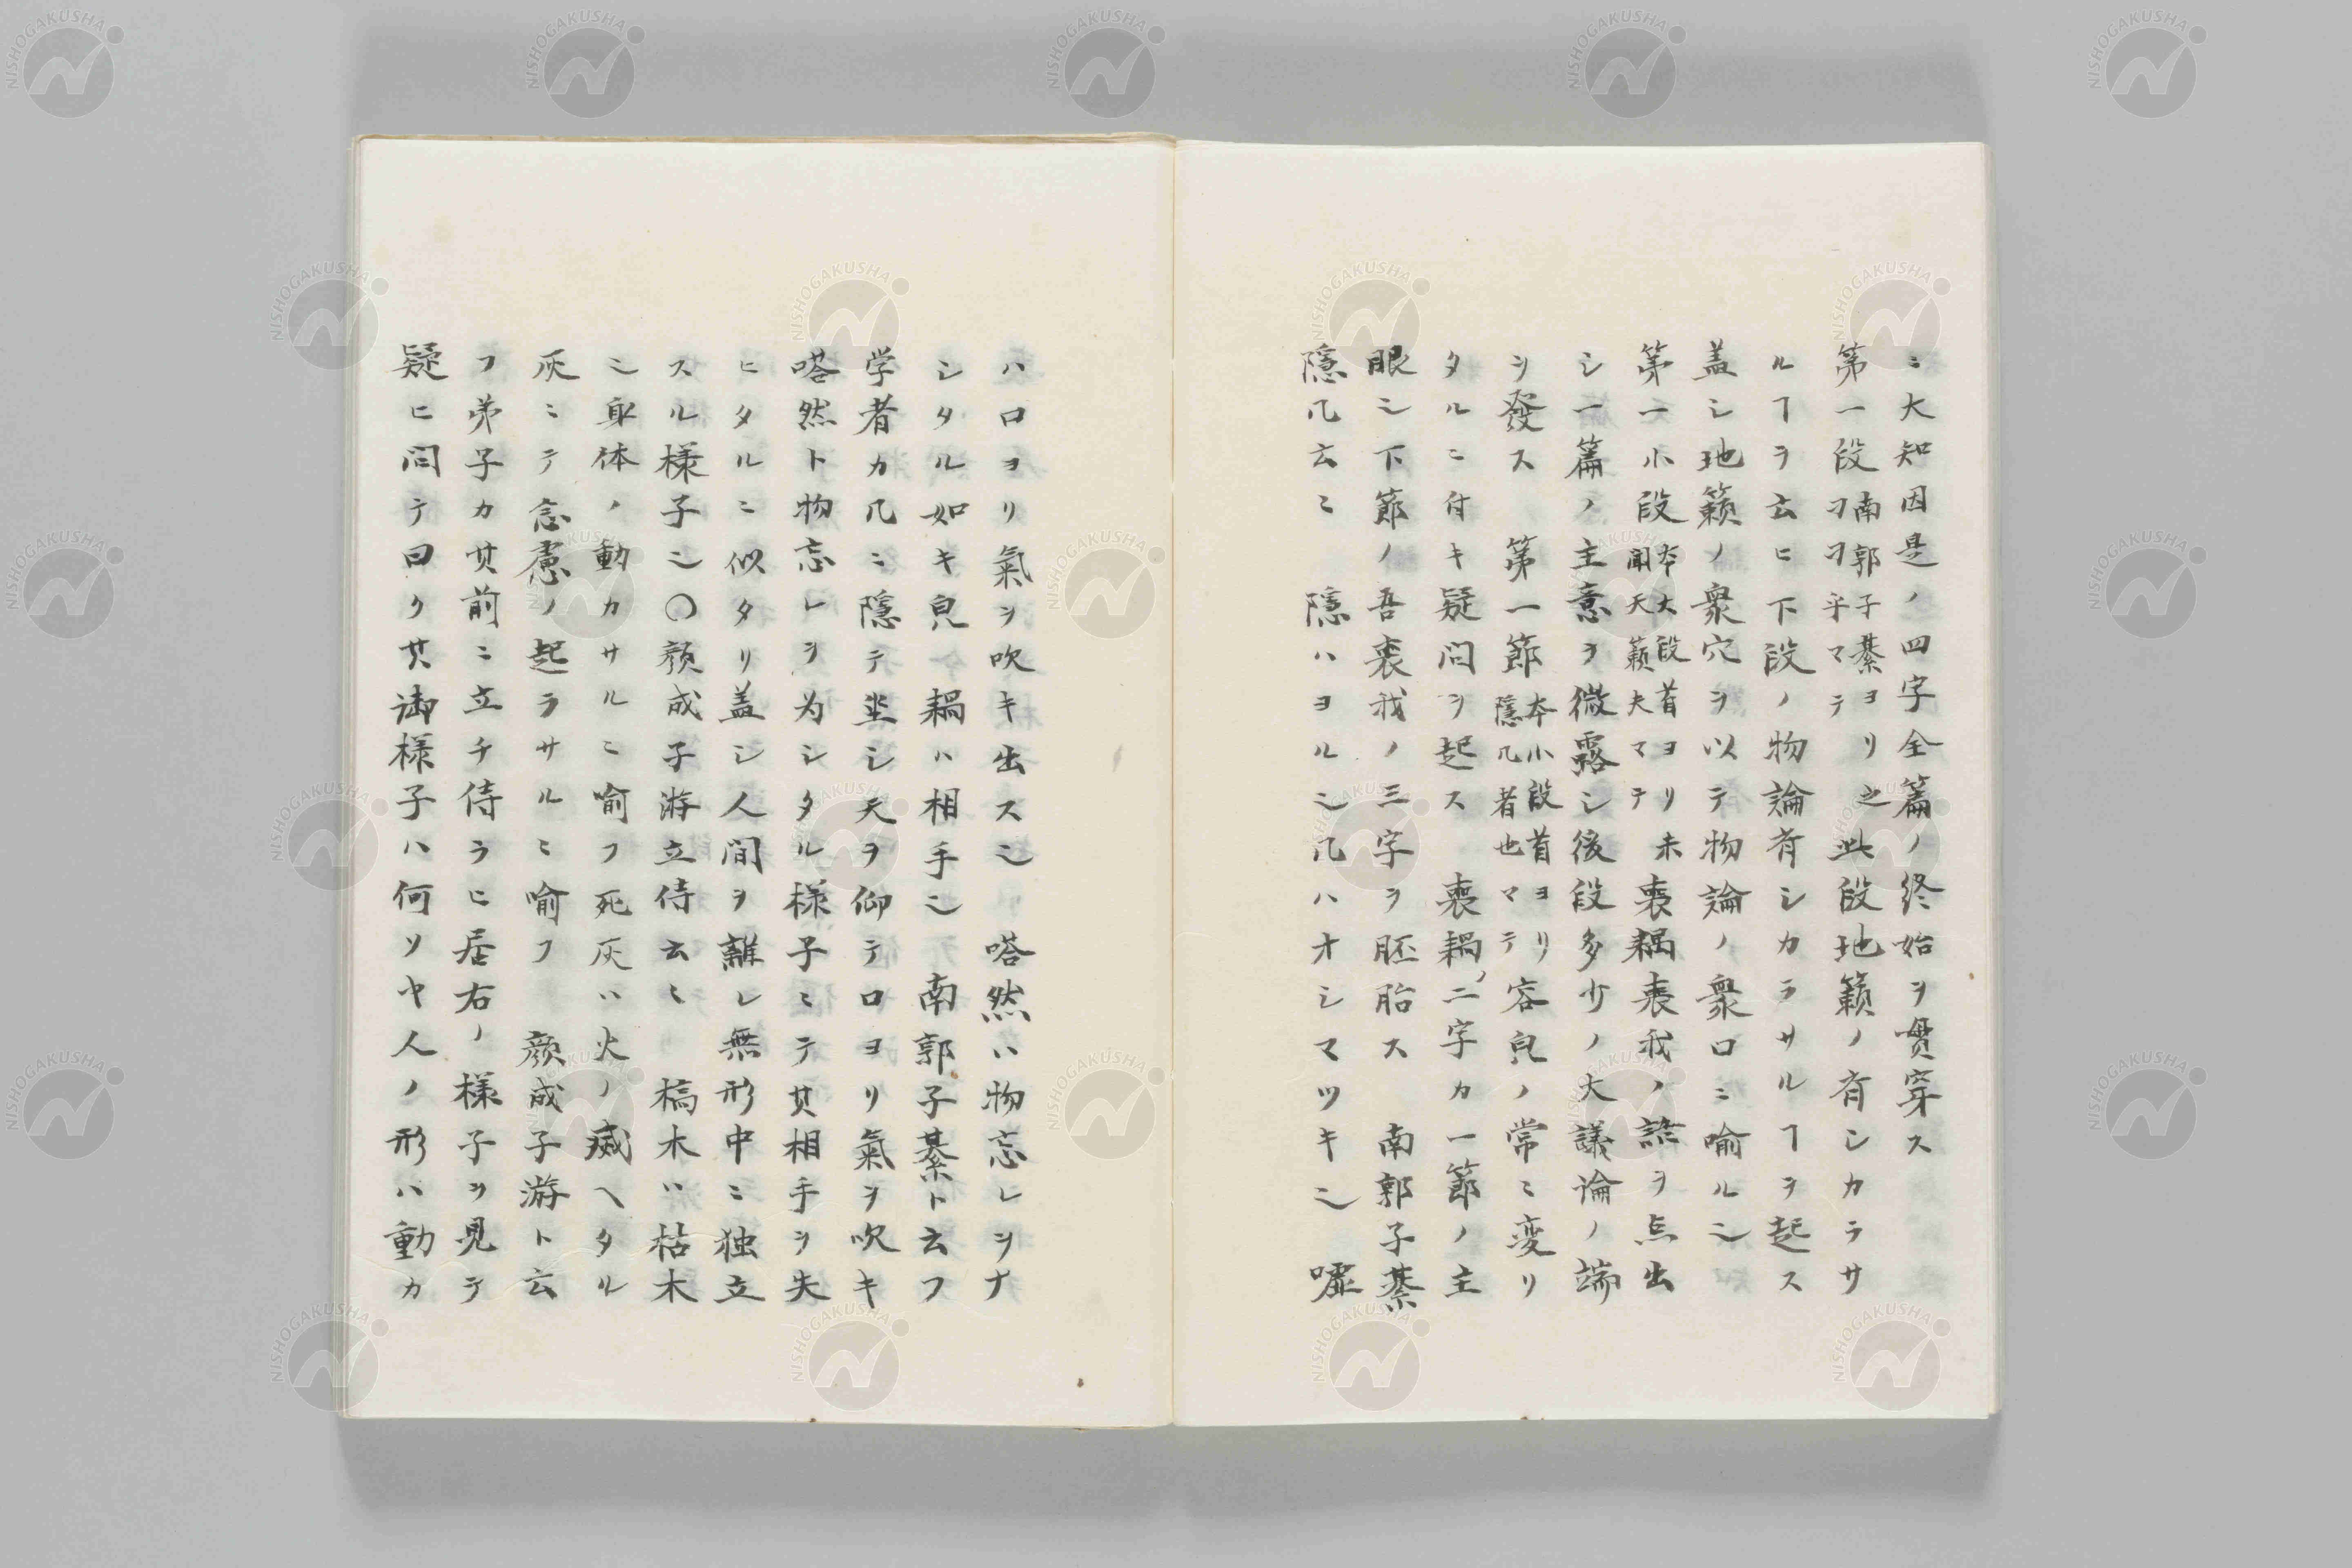 ニ大知因是ノ四字全篇ノ終始ヲ貫穿ス
第一段南郭子綦ヨリ之ヲヲ乎マテ此段地籟ノ有シカラサ
ルヿヲ云ヒ下段ノ物論有シカラサルヿヲ起ス
盖シ地籟ノ衆穴ヲ以テ物論ノ衆口ニ喻ル也
第一小段本大段首ヨリ未聞天籟夫マテ喪耦喪我ノ諸ヲ点出
シ一篇ノ主意ヲ微露シ後段多少ノ大議論ノ端
ヲ發ス 第一節本小段首ヨリ隱几者也マテ容皃ノ常ニ変リ
タルニ付キ疑问ヲ起ス 喪耦ノ二字カ一節ノ主
眼也下節ノ吾喪我ノ三字ヲ胚胎ス 南郭子綦
隱几云々 隱ハヨル也几ハオシマツキ也 嘘
ハ口ヨリ氣ヲ吹キ出ス也 嗒然ハ物忘レヲナ
シタル如キ皃 耦ハ相手也 南郭子綦ト云フ
学者カ几ニ隱テ坐シ天ヲ仰テ口ヨリ氣ヲ吹キ
嗒然ト物忘レヲ为シタル様子ニテ其相手ヲ失
ヒタルニ似タリ盖シ人间ヲ離レ無形中ニ独立
スル様子也〇顔成子游立侍云々 槁木ハ枯木
也身体ノ動カサルニ喻フ死灰ハ火ノ滅ヘタル
灰ニテ念慮ノ起ラサルニ喻フ 顔成子游ト云
フ弟子カ其前ニ立チ侍ラヒ居右ノ様子ヲ見テ
疑ヒ问テ曰ク其御様子ハ何ソヤ人ノ形ハ動カ
NISHOGAKUSHA